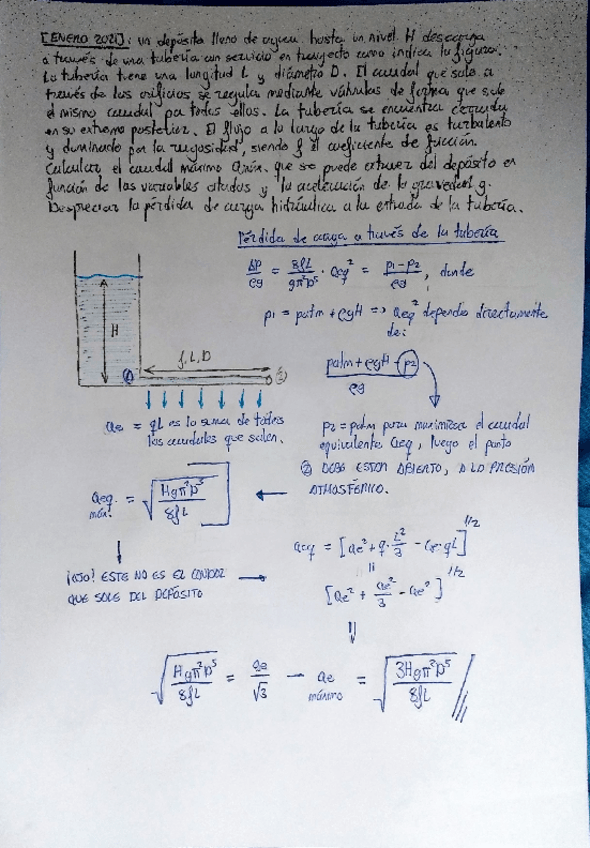 [ENERO 2021]: un depósito lleno de agua hasta un nivel H descarga
a través de una tubería con servicio en trayecto como indica la figura.
La tubería tiene una longitud L y diámetro D. El caudal que sale a
través de los orificios se regula mediante válvulas de forma que sale
el mismo caudal por todos ellos. La tubería se encuentra cerrada
en su extremo posterior. El flujo a lo largo de la tubería es turbulento
y dominado por la rugosidad, siendo f el coeficiente de fricción.
Calcular el caudal máximo Qmáx. que se puede extraer del depósito en
función de las variables citadas y la aceleración de la gravedad g.
Despreciar la pérdida de carga hidráulica a la entrada de la tubería.
Pérdida de carga a través de la tubería
ΔP/ρg = 8fL/gπ²D⁵ · Qeq² = p1-p2/ρg, donde
p1 = patm + ρgH => Qeq² depende directamente
de:
patm + ρgH - p2 / ρg
H
f, L, D
① ②
Qe = qL es la suma de todos
los caudales que salen.
p2 = patm para maximizar el caudal
equivalente Qeq, luego el punto
② DEBE ESTAR ABIERTO, A LA PRESIÓN
ATMOSFÉRICA.
Qeq máx. = √(Hgπ²D⁵/8fL)
¡OJO! ESTE NO ES EL CAUDAL
QUE SALE DEL DEPÓSITO
Qeq = [Qe² + q · L²/3 - Qe·qL]^1/2
=
[Qe² + Qe²/3 - Qe²]^1/2
√(Hgπ²D⁵/8fL) = Qe/√3 → Qe máximo = √(3Hgπ²D⁵/8fL)